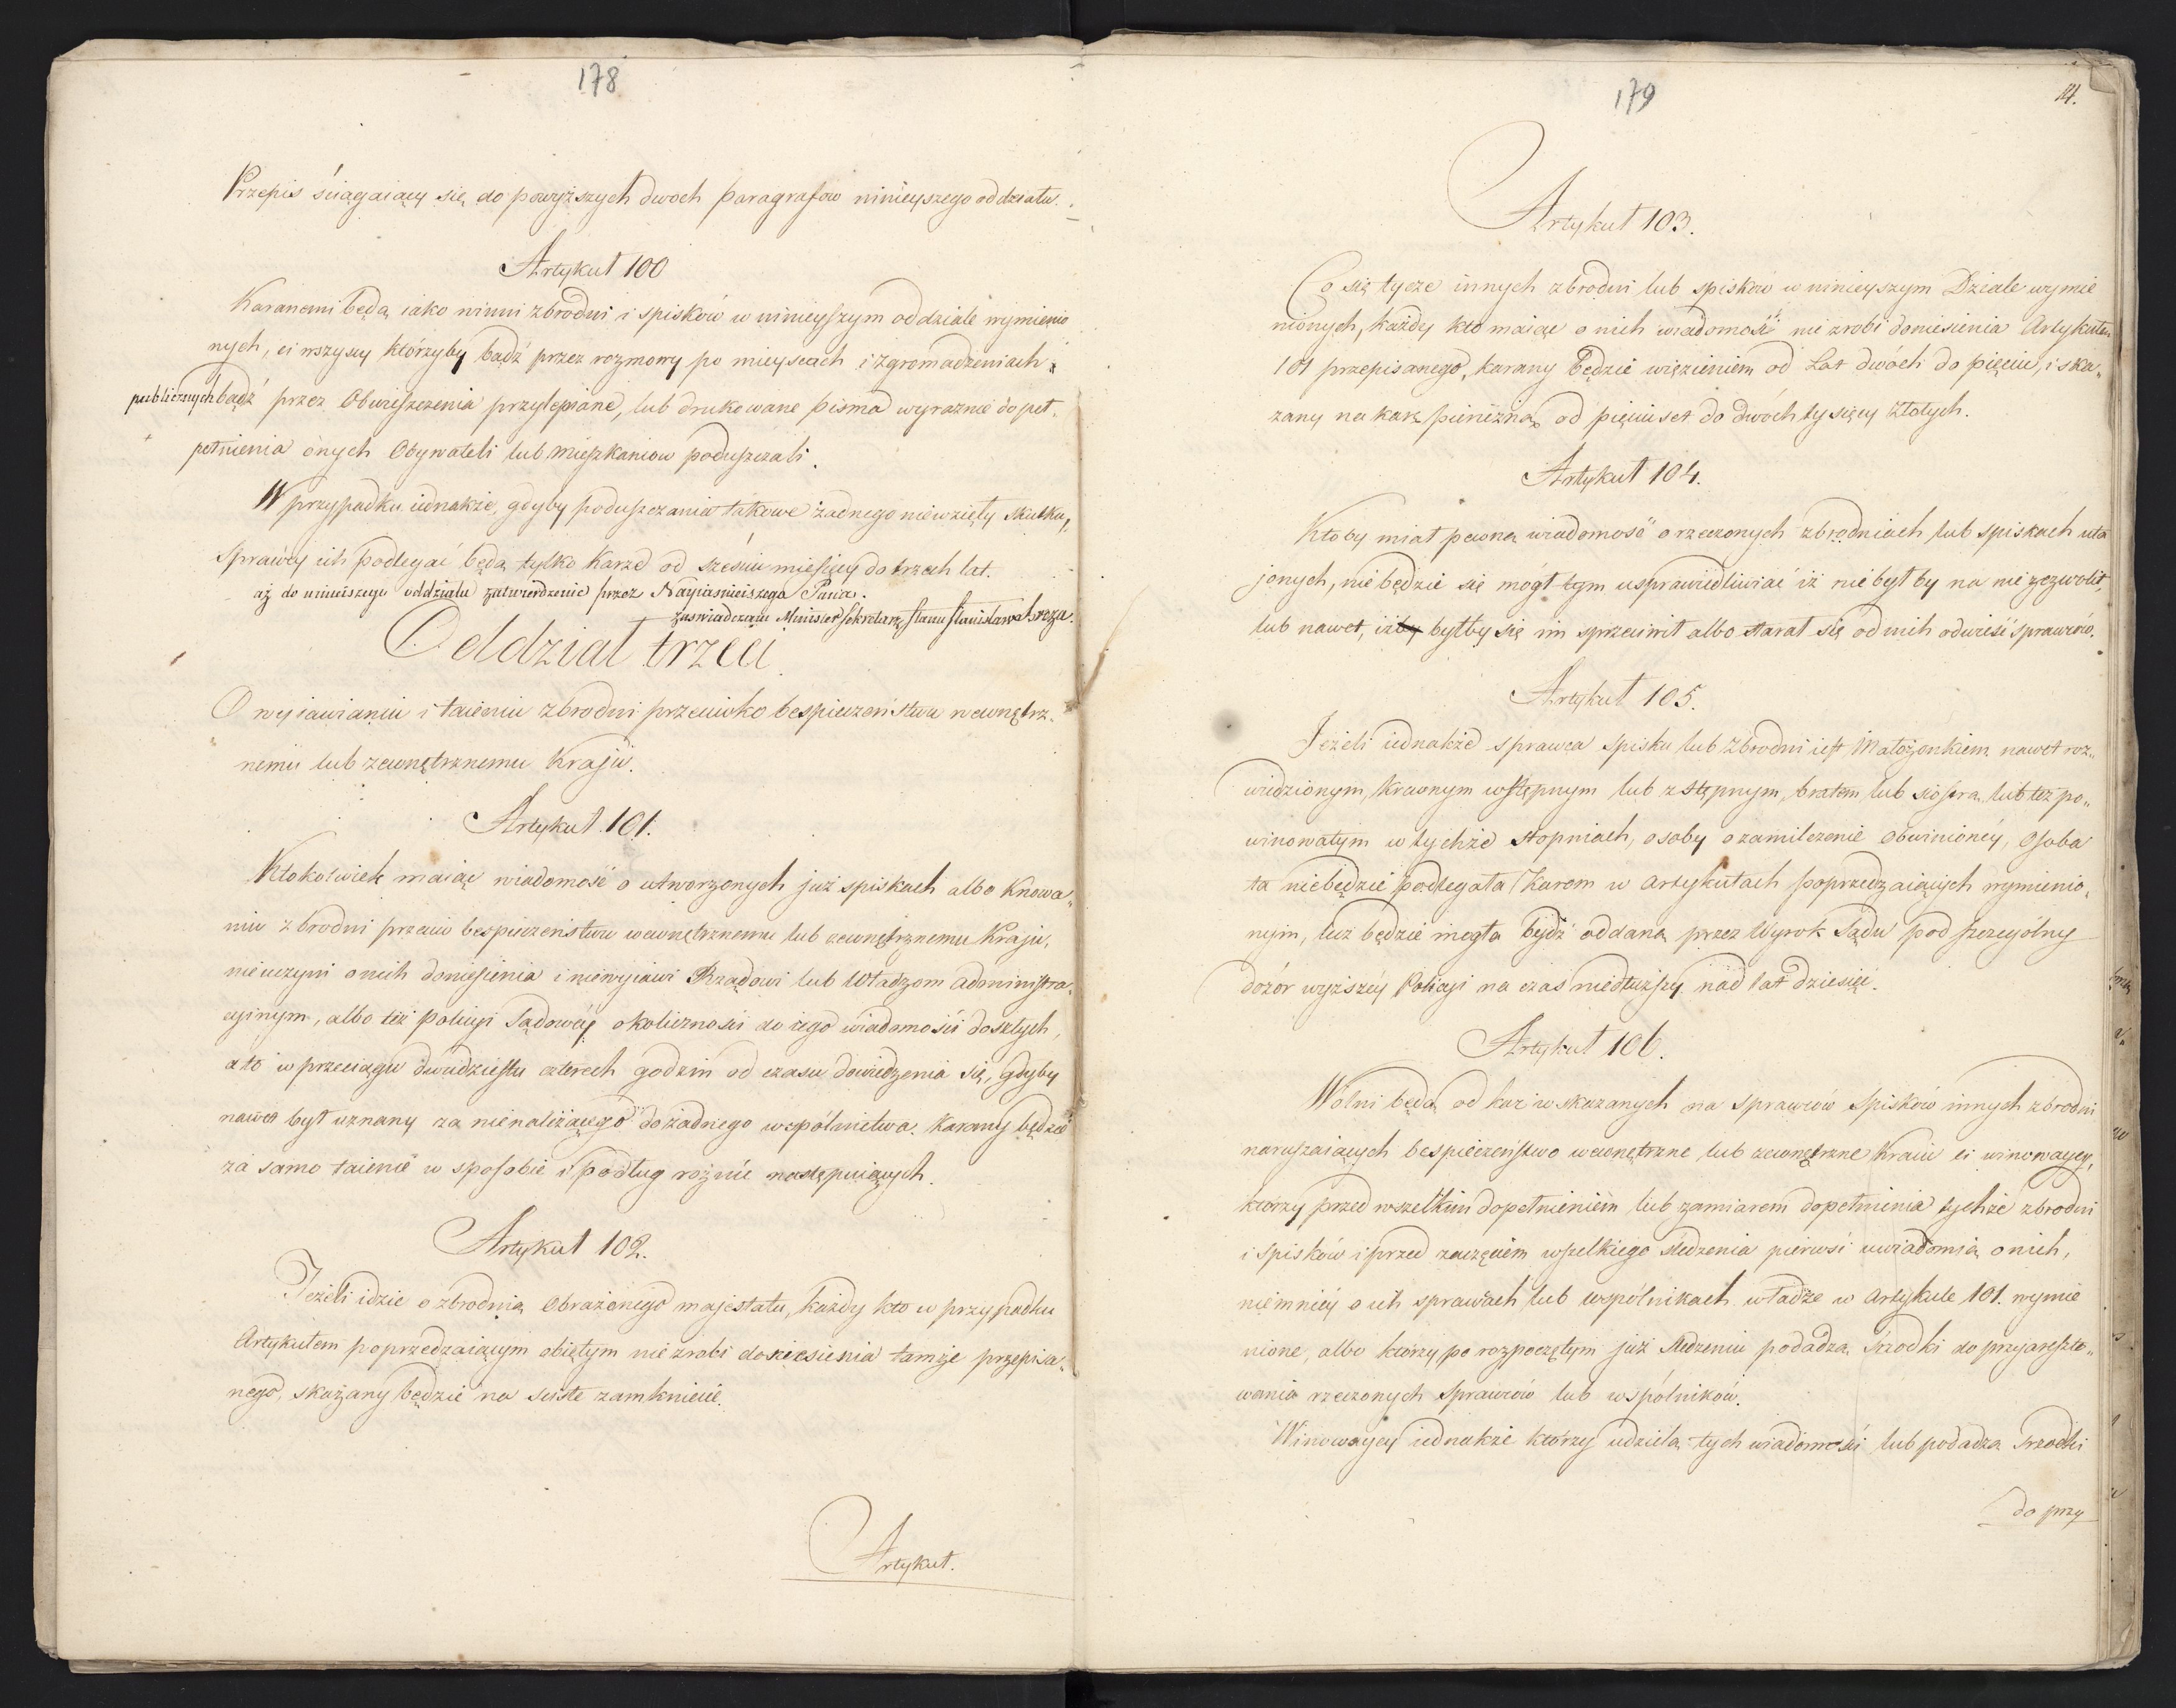 178
Przepis ściągaiący się do powyższych dwoch Paragrafow ninieyszego oddziału.
Artykuł 100
Karanemi będą iako winni zbrodni i spisków w ninieyszym oddziale wymienio
nych, ci wszyscy którzyby bądź przez rozmowy po mieyscach i zgromadzeniach
publicznych bądź przez Obwieszczenia przylepiane, lub drukowane pisma wyraznie do peł-
pełnienia onych Obywateli lub mieszkancow poduszczali.
W przypadku iednakże, gdyby poduszczania takowe żadnego niewzięły skutku,
Sprawcy ich podlegać będą tylko karze od sześciu miesięcy do trzech lat.
aż do niniejszego oddziału zatwierdzenie przez Nayiasnieiszego Pana.
zaswiadczam Minister Sekretarz Stanu Stanisław Breza.
Oddział trzeci
O wyiawianiu i taieniu zbrodni przeciwko bespieczeństwu wewnętrz-
nemu lub zewnętrznemu Kraju.
Artykuł 101.
Ktokolwiek maiąc wiadomość o utworzonych już spiskach albo knowa-
niu zbrodni przeciw bespieczeństwu wewnętrznemu lub zewnętrznemu Kraju,
nieuczyni o nich doniesienia i niewyiawi Rządowi lub Władzom administra-
cyinym, albo też policyi Sądowéy okoliczności do iego wiadomości doszłych,
a to w przeciągu dwudziestu czterech godzin od czasu dowiedzenia się, gdyby
nawet był uznany za nienależącego do żadnego wspólnictwa. Karany będzie
za samo taienie w sposobie i podług rożnic następuiących.
Artykuł 102.
Jeżeli idzie o zbrodnią Obrażonego majestatu, każdy kto w przypadku
Artykułem poprzedzaiącym obiętym nie zrobi doniesienia tamże przepisa-
nego, skazany będzie na ścisłe zamknięcie.
Artykuł.
179
14.
Artykuł 103.
Co się tycze innych zbrodni lub spisków w ninieyszym Dziale wymie
nionych, każdy kto maiąc o nich wiadomość nie zrobi doniesienia Artykułem
101 przepisanego, karany będzie więzieniem od Lat dwóch do pięciu, i ska-
zany na karę pieniężną od pięciuset do dwóch tysięcy złotych.
Artykuł 104.
Ktoby miał pewną wiadomość o rzeczonych zbrodniach lub spiskach uta
jonych, nie będzie się mógł tym usprawiedliwiać iż nie był by na nie zezwolił,
lub nawet, iżby byłby się im sprzeciwił albo starał się od nich odwieść sprawców.
Artykuł 105.
Jeżeli iednakże sprawca spisku lub zbrodni iest Małżonkiem nawet roz-
wiedzionym, krewnym wstępnym lub zstępnym, bratem lub siostrą, lub też po-
winowatym w tychże stopniach, osoby o zamilczenie obwinionéy, Osoba
ta niebędzie podlegała karom w artykułach poprzedzaiących wymienio-
nym, lecz będzie mogła bydź oddaną przez Wyrok Sądu pod szczególny
dozór wyższéy Policyi na czas niedłuższy nad lat dziesięć.
Artykuł 106.
Wolni będą od kar wskazanych na sprawców Spisków innych zbrodni
naruszaiących bespieczeństwo wewnętrzne lub zewnętrzne Kraiu ci winowaycy,
którzy przed wszelkim dopełnieniem lub zamiarem dopełnienia tychże zbrodni
i spisków i przed zaczęciem wszelkiego śledzenia pierwsi uwiadomią o nich,
niemniéy o ich sprawcach lub wspólnikach władze w artykule 101. wymie
nione, albo którzy po rozpoczętym już śledzeniu podadzą środki do przyareszto-
wania rzeczonych sprawców lub wspólników.
Winowaycy iednakże którzy udzielą tych wiadomości lub podadzą środki
do przy